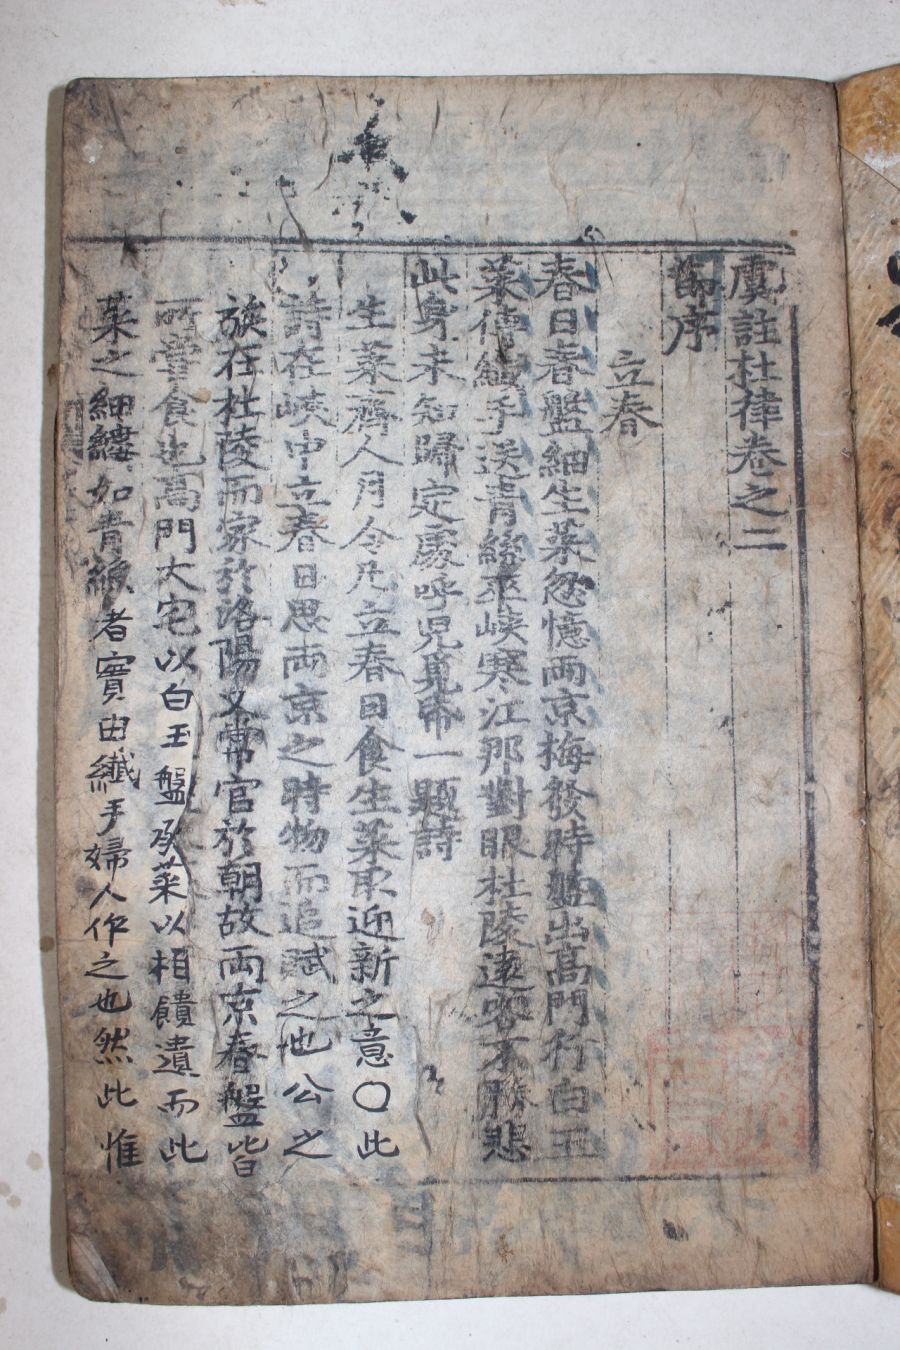 虞註杜律卷之二
節序
立春
春日春盤細生菜忽憶兩京梅發時盤出高門行白玉
菜傳纖手送青絲巫峽寒江那對眼杜陵遠客不勝悲
此身未知歸定處呼兒覓帋一題詩
生菜齊人月令凡立春日食生菜取迎新之意〇此
詩在峽中立春日思兩京之時物而追賦之也公之
族在杜陵而家於洛陽又常官於朝故兩京春盤皆
所嘗食也高門大宅以白玉盤承菜以相饋遺而此
菜之細縷如青絲者實由纖手婦人作之也然此惟